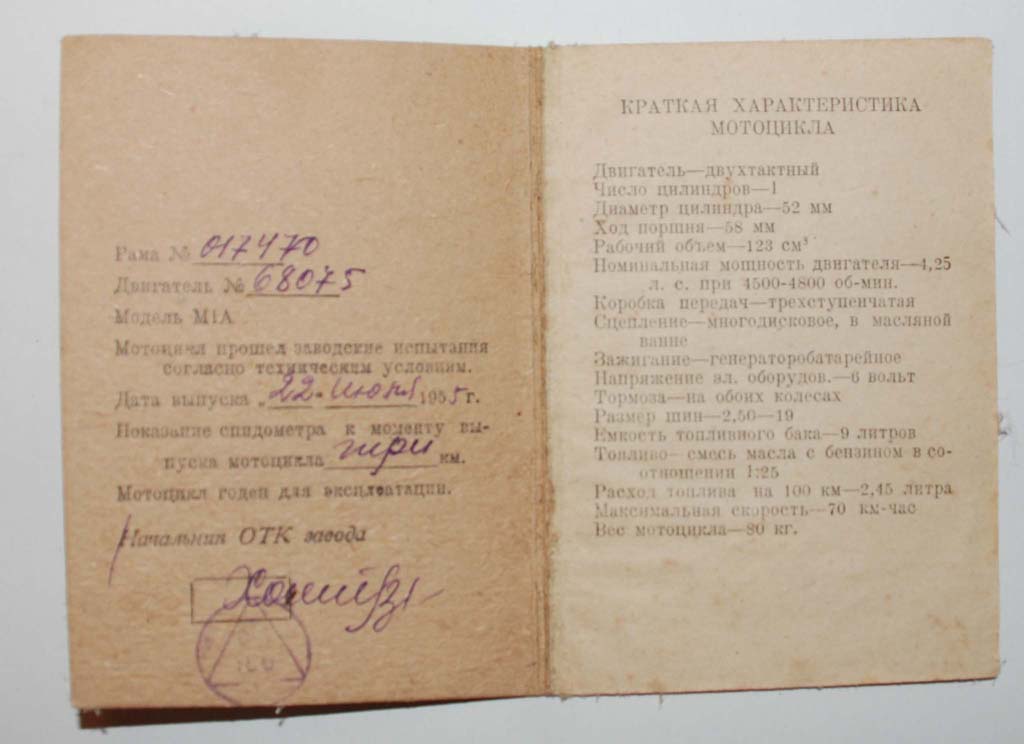 Рама № 017470
Двигатель № 68075
Модель М1А
Мотоцикл прошел заводские испытания
согласно техническим условиям.
Дата выпуска „ 22 " июня 1955 г.
Показание спидометра к моменту вы-
пуска мотоцикла три км.
Мотоцикл годен для эксплоатации.
Начальник ОТК завода
КРАТКАЯ ХАРАКТЕРИСТИКА
МОТОЦИКЛА
Двигатель—двухтактный
Число цилиндров—1
Диаметр цилиндра—52 мм
Ход поршня—58 мм
Рабочий объем—123 см³
Номинальная мощность двигателя—4,25
л. с. при 4500-4800 об-мин.
Коробка передач—трехступенчатая
Сцепление—многодисковое, в масляной
ванне
Зажигание—генераторобатарейное
Напряжение эл. оборудов.—6 вольт
Тормоза—на обоих колесах
Размер шин—2,50—19
Емкость топливного бака—9 литров
Топливо—смесь масла с бензином в со-
отношении 1:25
Расход топлива на 100 км—2,45 литра
Максимальная скорость—70 км-час
Вес мотоцикла—80 кг.